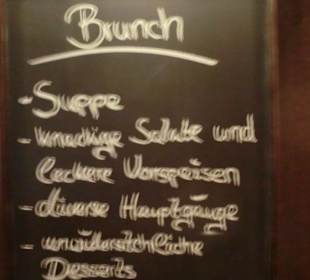 Brunch
- Suppe
- knackige Salate und
leckere Vorspeisen
- diverse Hauptgänge
- unwiderstehliche
Desserts